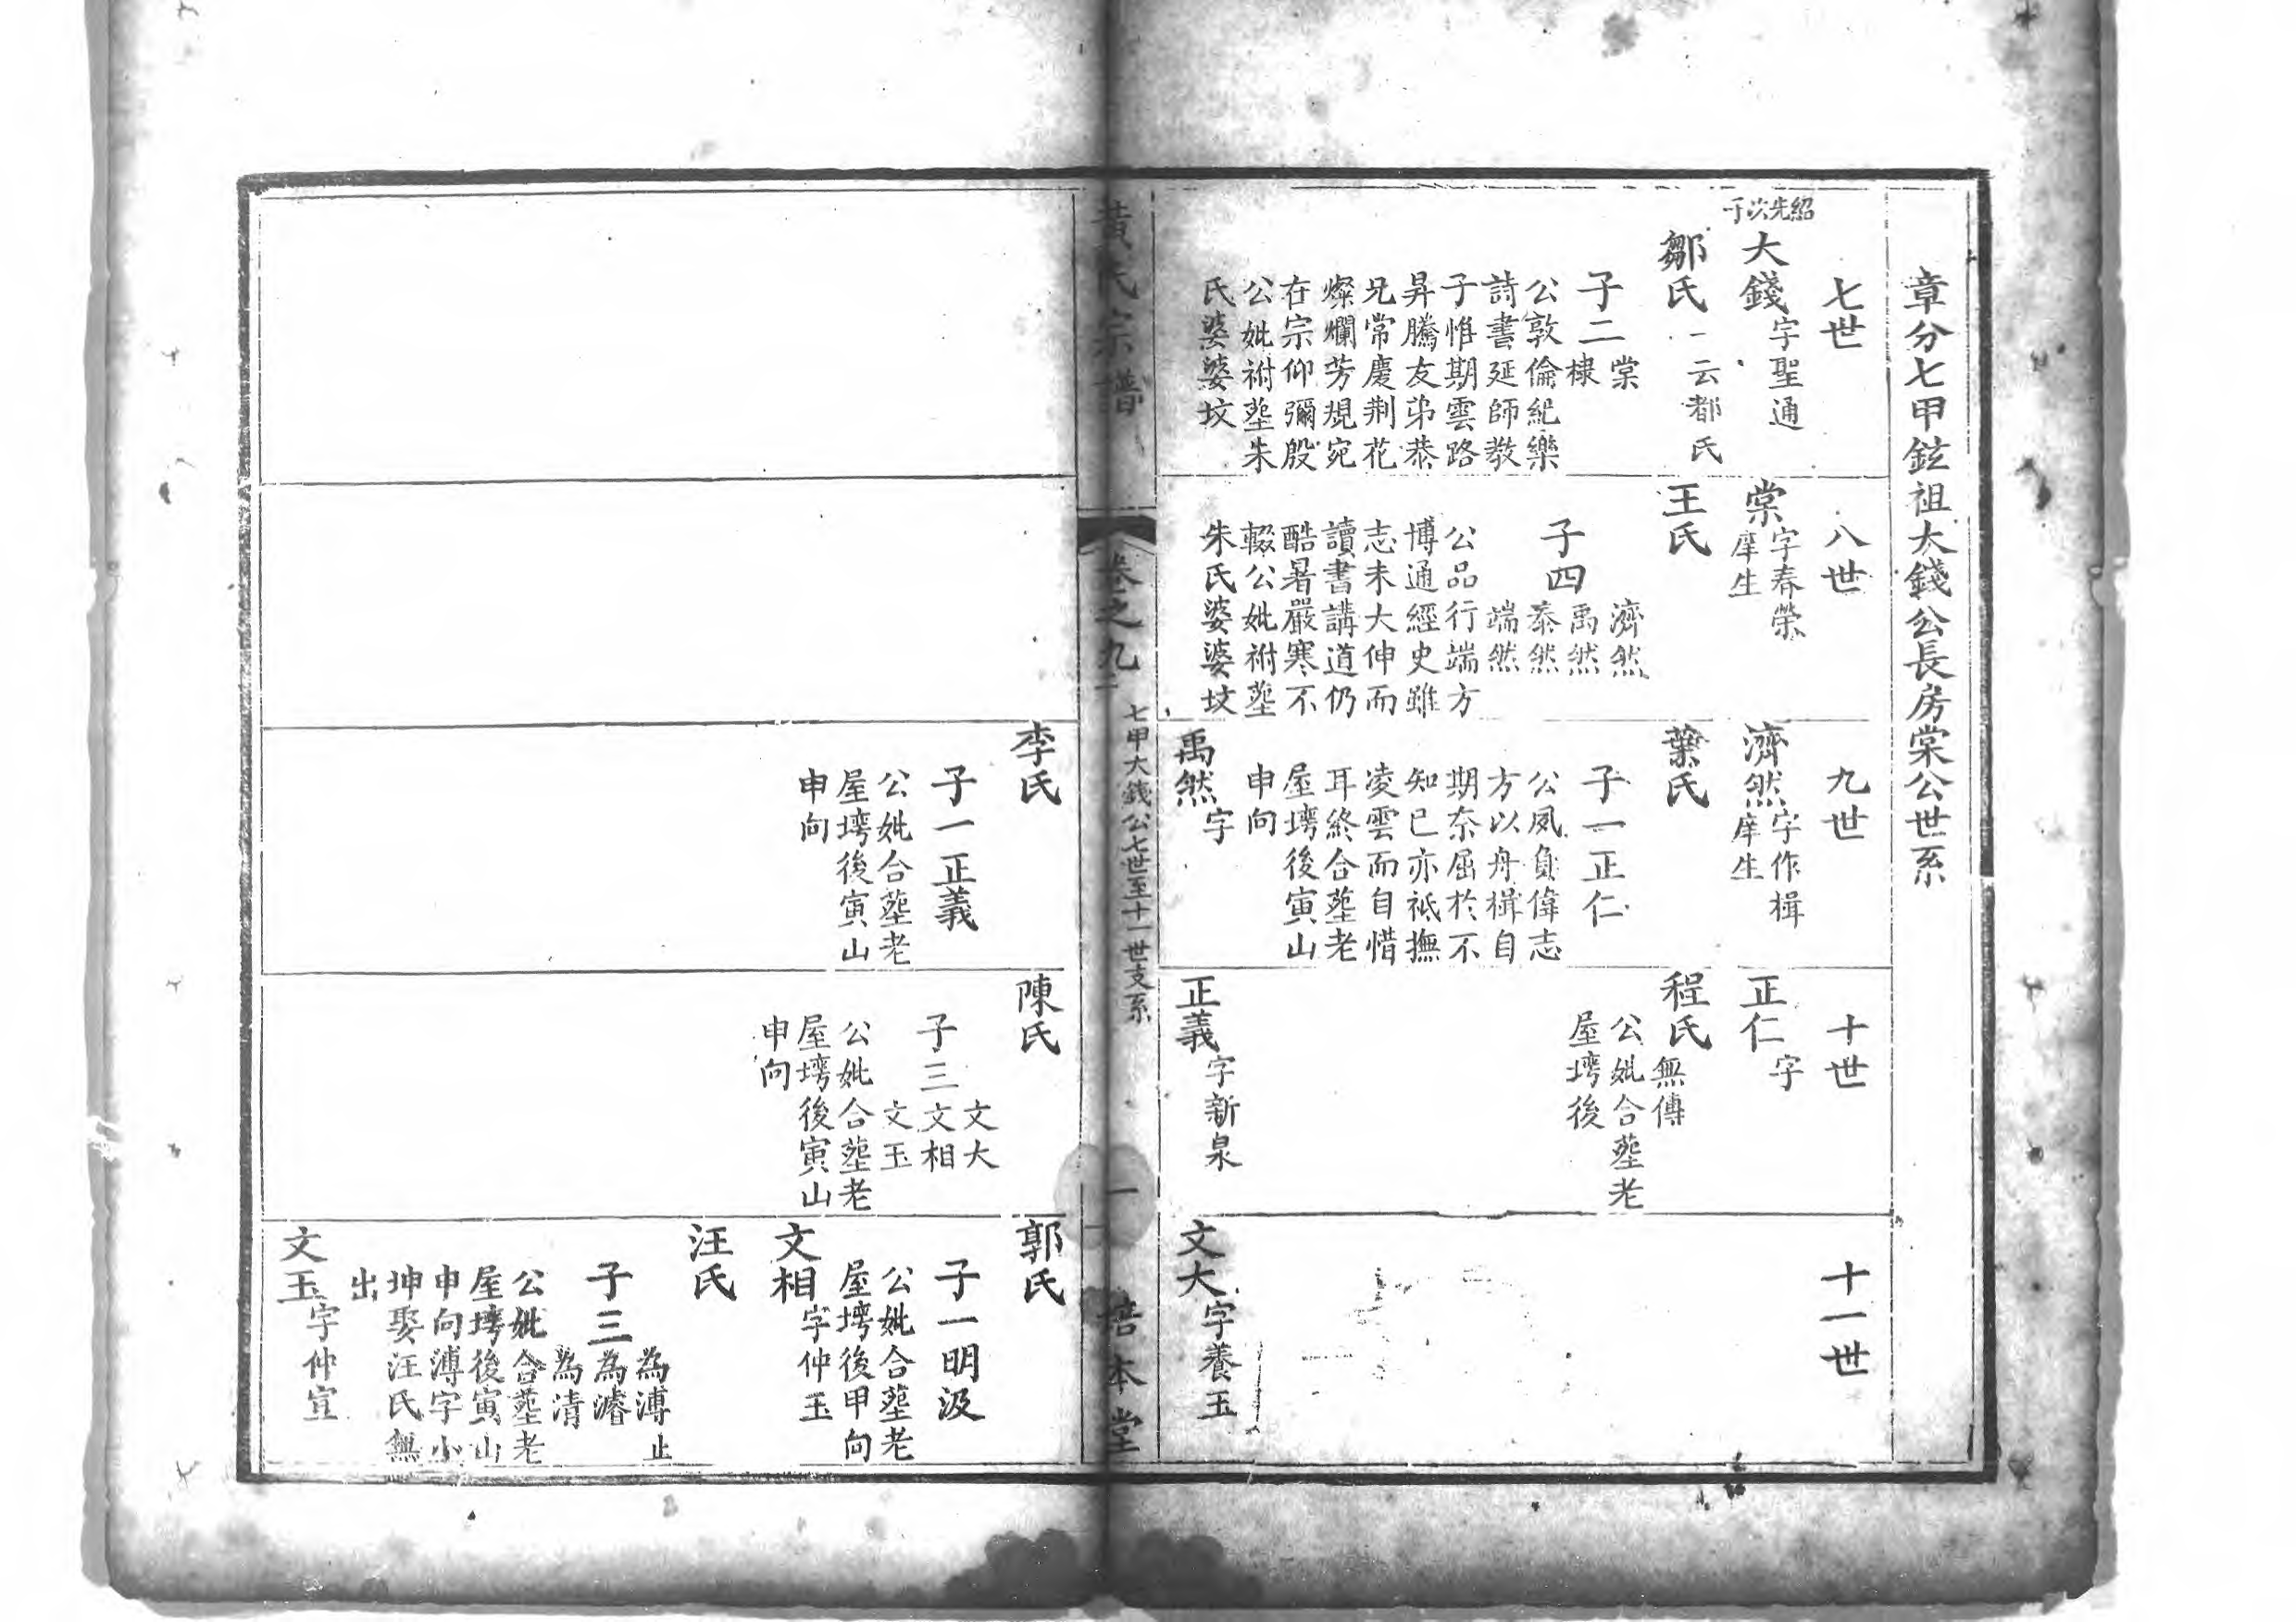 章分七甲鉉祖大錢公長房棠公世系
七世
紹先次子
大錢字聖通
鄒氏一云都氏
子二
棠
棣
公敦倫紀樂
詩書延師教
子惟期雲路
昇騰友弟恭
兄常慶荆花
燦爛芳規宛
在宗仰彌殷
公妣祔塟朱
氏婆婆坟
八世
棠字春榮
庠生
王氏
子四
濟然
禹然
泰然
端然
公品行端方
博通經史雖
志未大伸而
讀書講道仍
酷暑嚴寒不
輟公妣祔塟
朱氏婆婆坟
九世
濟然字作楫
庠生
葉氏
子一正仁
公夙負偉志
方以舟楫自
期奈屈於不
知已亦祗撫
凌雲而自惜
耳終合塟老
屋塆後寅山
申向
禹然字
十世
正仁字
程氏無傳
公妣合塟老
屋塆後
正義字新泉
十一世
文大字養玉
黃氏宗譜
卷之九
七甲大錢公七世至十一世支系
一
培本堂
李氏
子一正義
公妣合塟老
屋塆後寅山
申向
陳氏
子三
文大
文相
文玉
公妣合塟老
屋塆後寅山
申向
郭氏
子一明汲
公妣合塟老
屋塆後甲向
文相字仲玉
汪氏
子三
為溥止
為濬
為清
公妣合塟老
屋塆後寅山
申向溥字小
坤娶汪氏無
出
文玉字仲宣